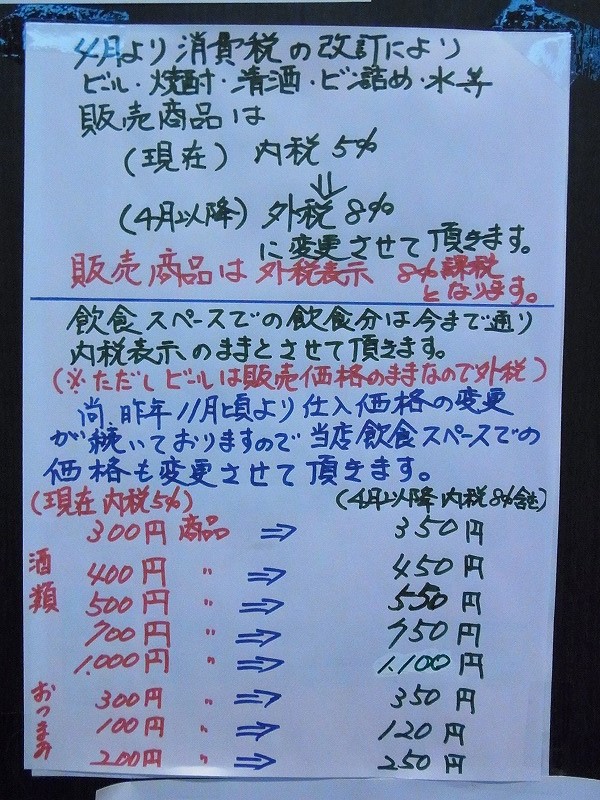 4月より消費税の改訂により
ビール・焼酎・清酒・ビン詰め・水等
販売商品は
(現在) 内税5%
⇓
(4月以降) 外税8%
に変更させて頂きます。
販売商品は外税表示 8%課税
となります。
飲食スペースでの飲食分は今まで通り
内税表示のままとさせて頂きます。
(※ただしビールは販売価格のままなので外税)
尚、昨年11月頃より仕入価格の変更
が続いておりますので当店飲食スペースでの
価格も変更させて頂きます。
(現在内税5%) (4月以降内税8%含む)
酒類
300円商品 ⇒ 350円
400円 〃 ⇒ 450円
500円 〃 ⇒ 550円
700円 〃 ⇒ 750円
1.000円 〃 ⇒ 1.100円
おつまみ
300円 〃 ⇒ 350円
100円 〃 ⇒ 120円
200円 〃 ⇒ 250円